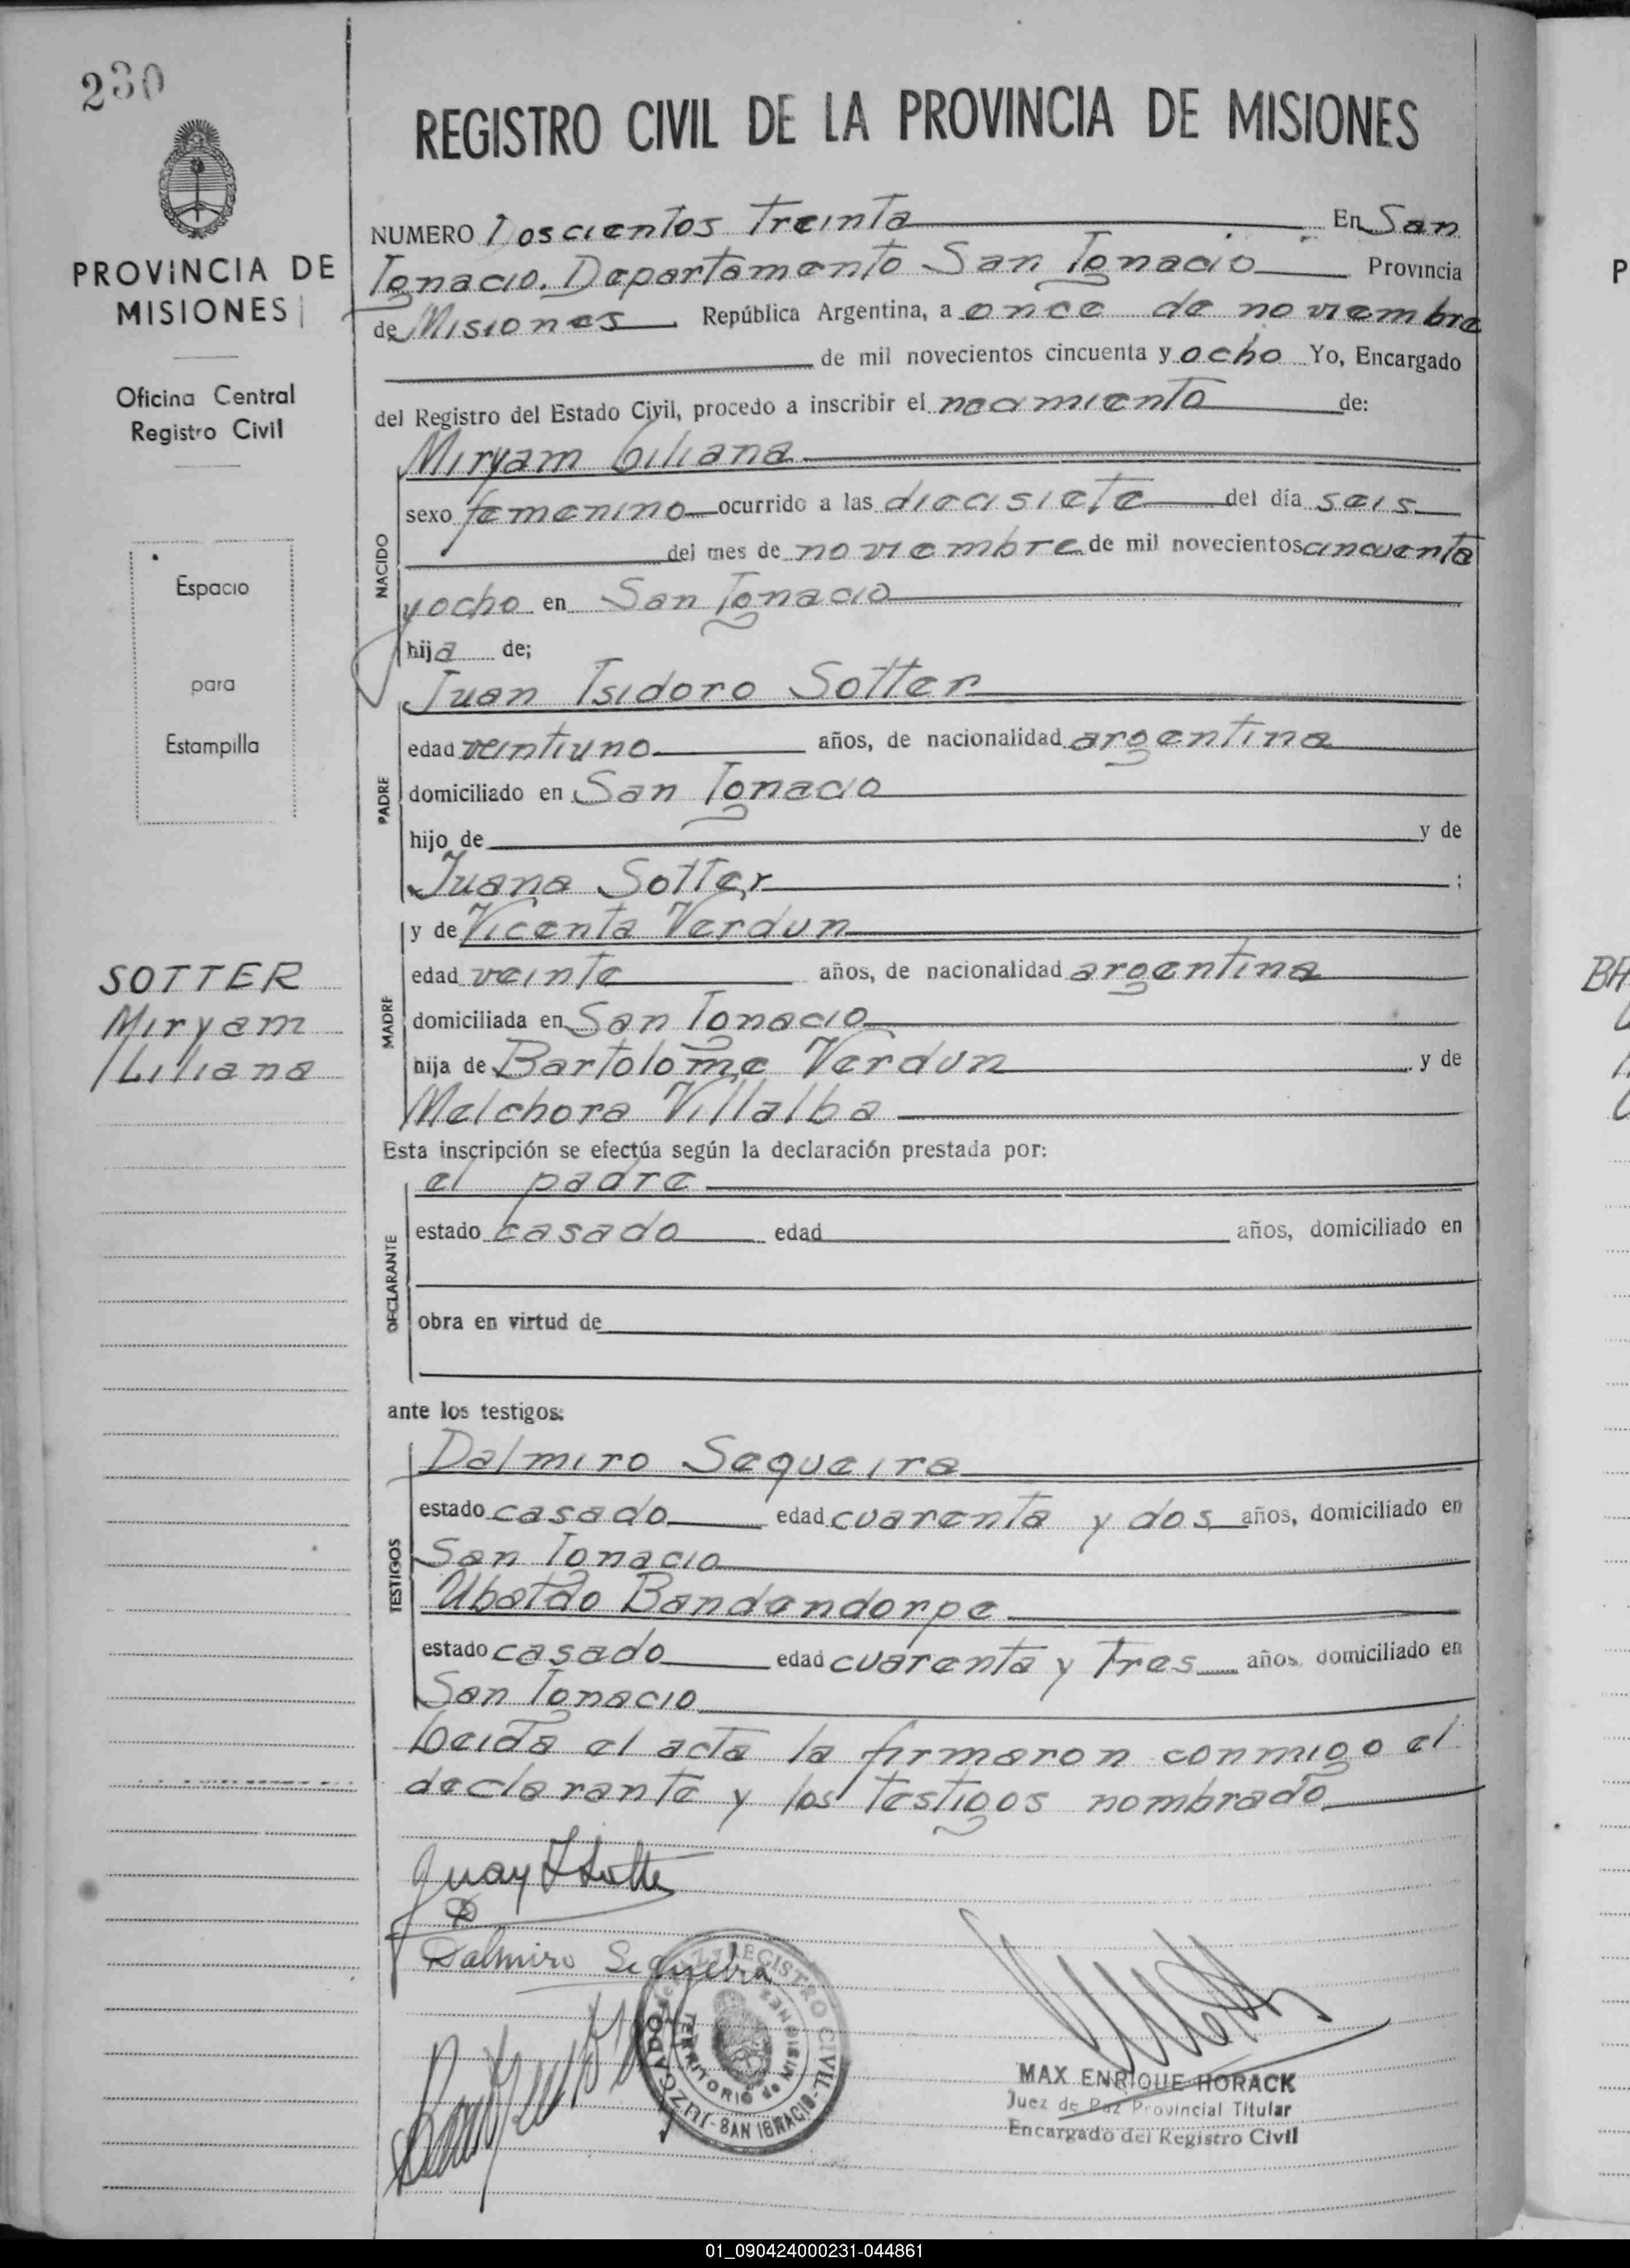 230
PROVINCIA DE
MISIONES
Oficina Central
Registro Civil
Espacio
para
Estampilla
SOTTER
Miryam
Liliana
REGISTRO CIVIL DE LA PROVINCIA DE MISIONES
NUMERO Doscientos Treinta En San
Ignacio. Departamento San Ignacio Provincia
de Misiones República Argentina, a once de noviembre
de mil novecientos cincuenta y ocho Yo, Encargado
del Registro del Estado Civil, procedo a inscribir el nacimiento de:
Miryam Liliana
NACIDO
sexo femenino ocurrido a las diecisiete del día seis
del mes de noviembre de mil novecientos cincuenta
y ocho en San Ignacio
hija de;
Juan Isidoro Sotter
PADRE
edad veintiuno años, de nacionalidad argentina
domiciliado en San Ignacio
hijo de y de
Juana Sotter ;
MADRE
y de Vicenta Verdun
edad veinte años, de nacionalidad argentina
domiciliada en San Ignacio
hija de Bartolome Verdun y de
Melchora Villalba
Esta inscripción se efectúa según la declaración prestada por:
el padre
DECLARANTE
estado casado edad años, domiciliado en
obra en virtud de
ante los testigos:
TESTIGOS
Dalmiro Sequeira
estado casado edad cuarenta y dos años, domiciliado en
San Ignacio
Ubaldo Bandendorpe
estado casado edad cuarenta y Tres años domiciliado en
San Ignacio
Leida el acta la firmaron conmigo el
declarante y los testigos nombrado
Juan I Sotter
Dalmiro Sequeira
JUZGADO DE PAZ Y REGISTRO CIVIL - SAN IGNACIO -
TERRITORIO de MISIONES
MAX ENRIQUE HORACK
Juez de Paz Provincial Titular
Encargado del Registro Civil
P
BA
01_090424000231-044861